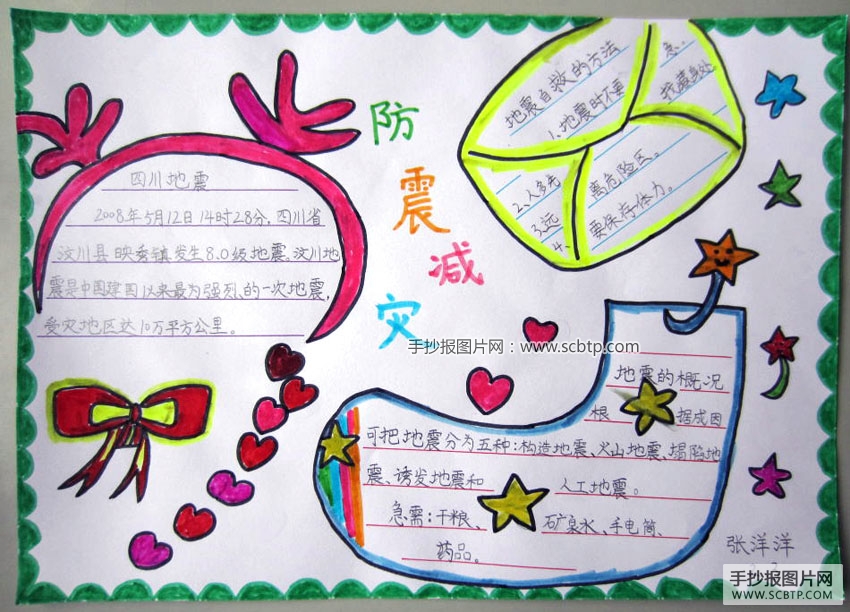 防震减灾
四川地震
2008年5月12日14时28分,四川省
汶川县映秀镇发生8.0级地震、汶川地
震是中国建国以来最为强烈的一次地震,
受灾地区达10万平方公里。
地震自救的方法
1、地震时不要
急、
2、人多先
找藏身处
3、远
离危险区。
4、
要保存体力。
手抄报图片网:www.scbtp.com
地震的概况
根据成因
可把地震分为五种:构造地震、火山地震、塌陷地
震、诱发地震和人工地震。
急需:干粮、矿泉水、手电筒、
药品。
张洋洋
手抄报图片网
WWW.SCBTP.COM